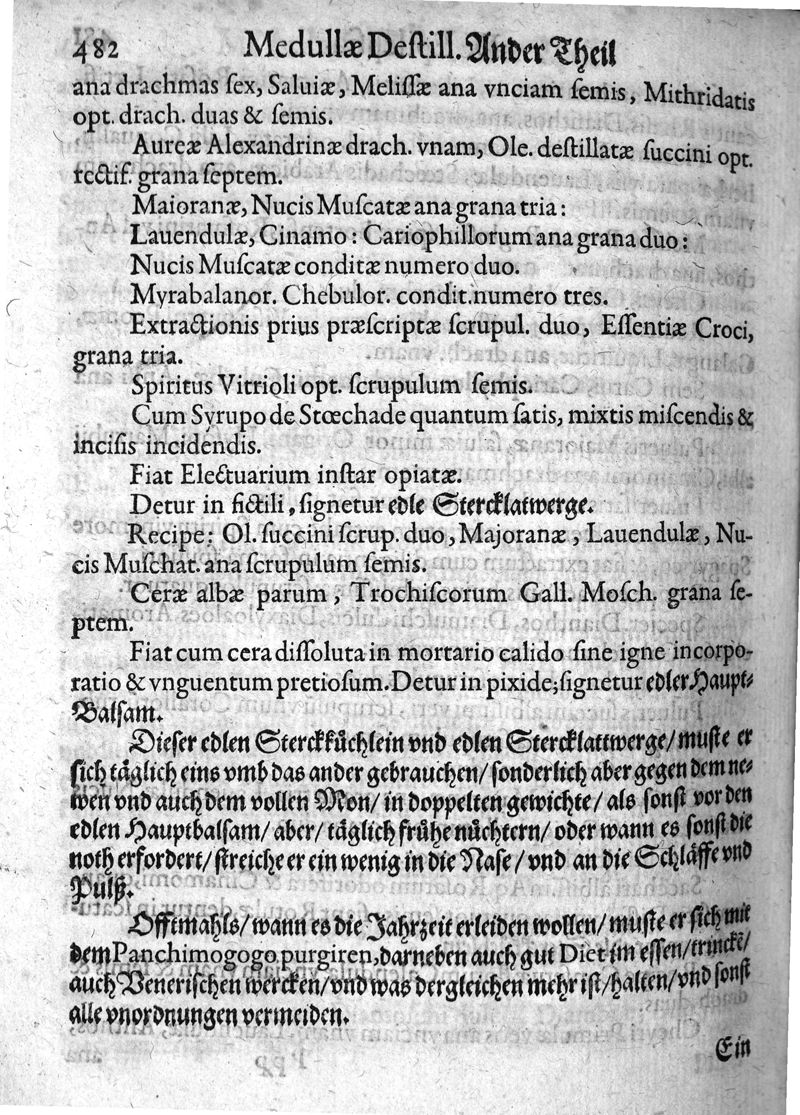 482 Medullæ Destill. Ander Theil
ana drachmas sex, Saluiæ, Melissæ ana vnciam semis, Mithridatis
opt. drach. duas & semis.
Aureæ Alexandrinæ drach. vnam, Ole. destillatæ succini opt.
rectif. grana septem.
Maioranæ, Nucis Muscatæ ana grana tria:
Lauendulæ, Cinamo: Cariophillorum ana grana duo:
Nucis Muscatæ conditæ numero duo.
Myrabalanor. Chebulor. condit. numero tres.
Extractionis prius præscriptæ scrupul. duo, Essentiæ Croci,
grana tria.
Spiritus Vitrioli opt. scrupulum semis.
Cum Syrupo de Stœchade quantum satis, mixtis miscendis &
incisis incidendis.
Fiat Electuarium instar opiatæ.
Detur in fictili, signetur edle Stercklatwerge.
Recipe: Ol. succini scrup. duo, Majoranæ, Lauendulæ, Nu-
cis Muschat. ana scrupulum semis.
Ceræ albæ parum, Trochiscorum Gall. Mosch. grana se-
ptem.
Fiat cum cera dissoluta in mortario calido sine igne incorpo-
ratio & vnguentum pretiosum. Detur in pixide; signetur edler Haupt-
Balsam.
Dieser edlen Sterckküchlein vnd edlen Stercklattwerge/ muste er
sich täglich eins vmb das ander gebrauchen/ sonderlich aber gegen dem ne-
wen vnd auch dem vollen Mon/ in doppelten gewichte/ als sonst vor den
edlen Hauptbalsam/ aber/ täglich frühe nüchtern/ oder wann es sonst die
noth erfordert/ streiche er ein wenig in die Nase/ vnd an die Schläffe vnd
Pulß.
Offtmahls/ wann es die Jahrzeit erleiden wollen/ muste er sich mit
dem Panchimogogo purgiren, darneben auch gut Diet im essen/ trinckē/
auch Venerischen wercken/ vnd was dergleichen mehr ist/ halten/ vnd sonst
alle vnordnungen vermeiden.
Ein